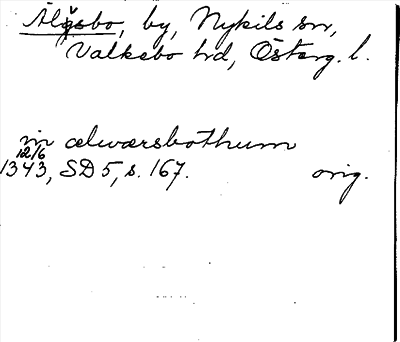 Älgsbo, by, Nykils sn,
Valkebo hd, Österg. l.
in ælwærsbothum
12/6
1343, SD 5, s. 167. orig.